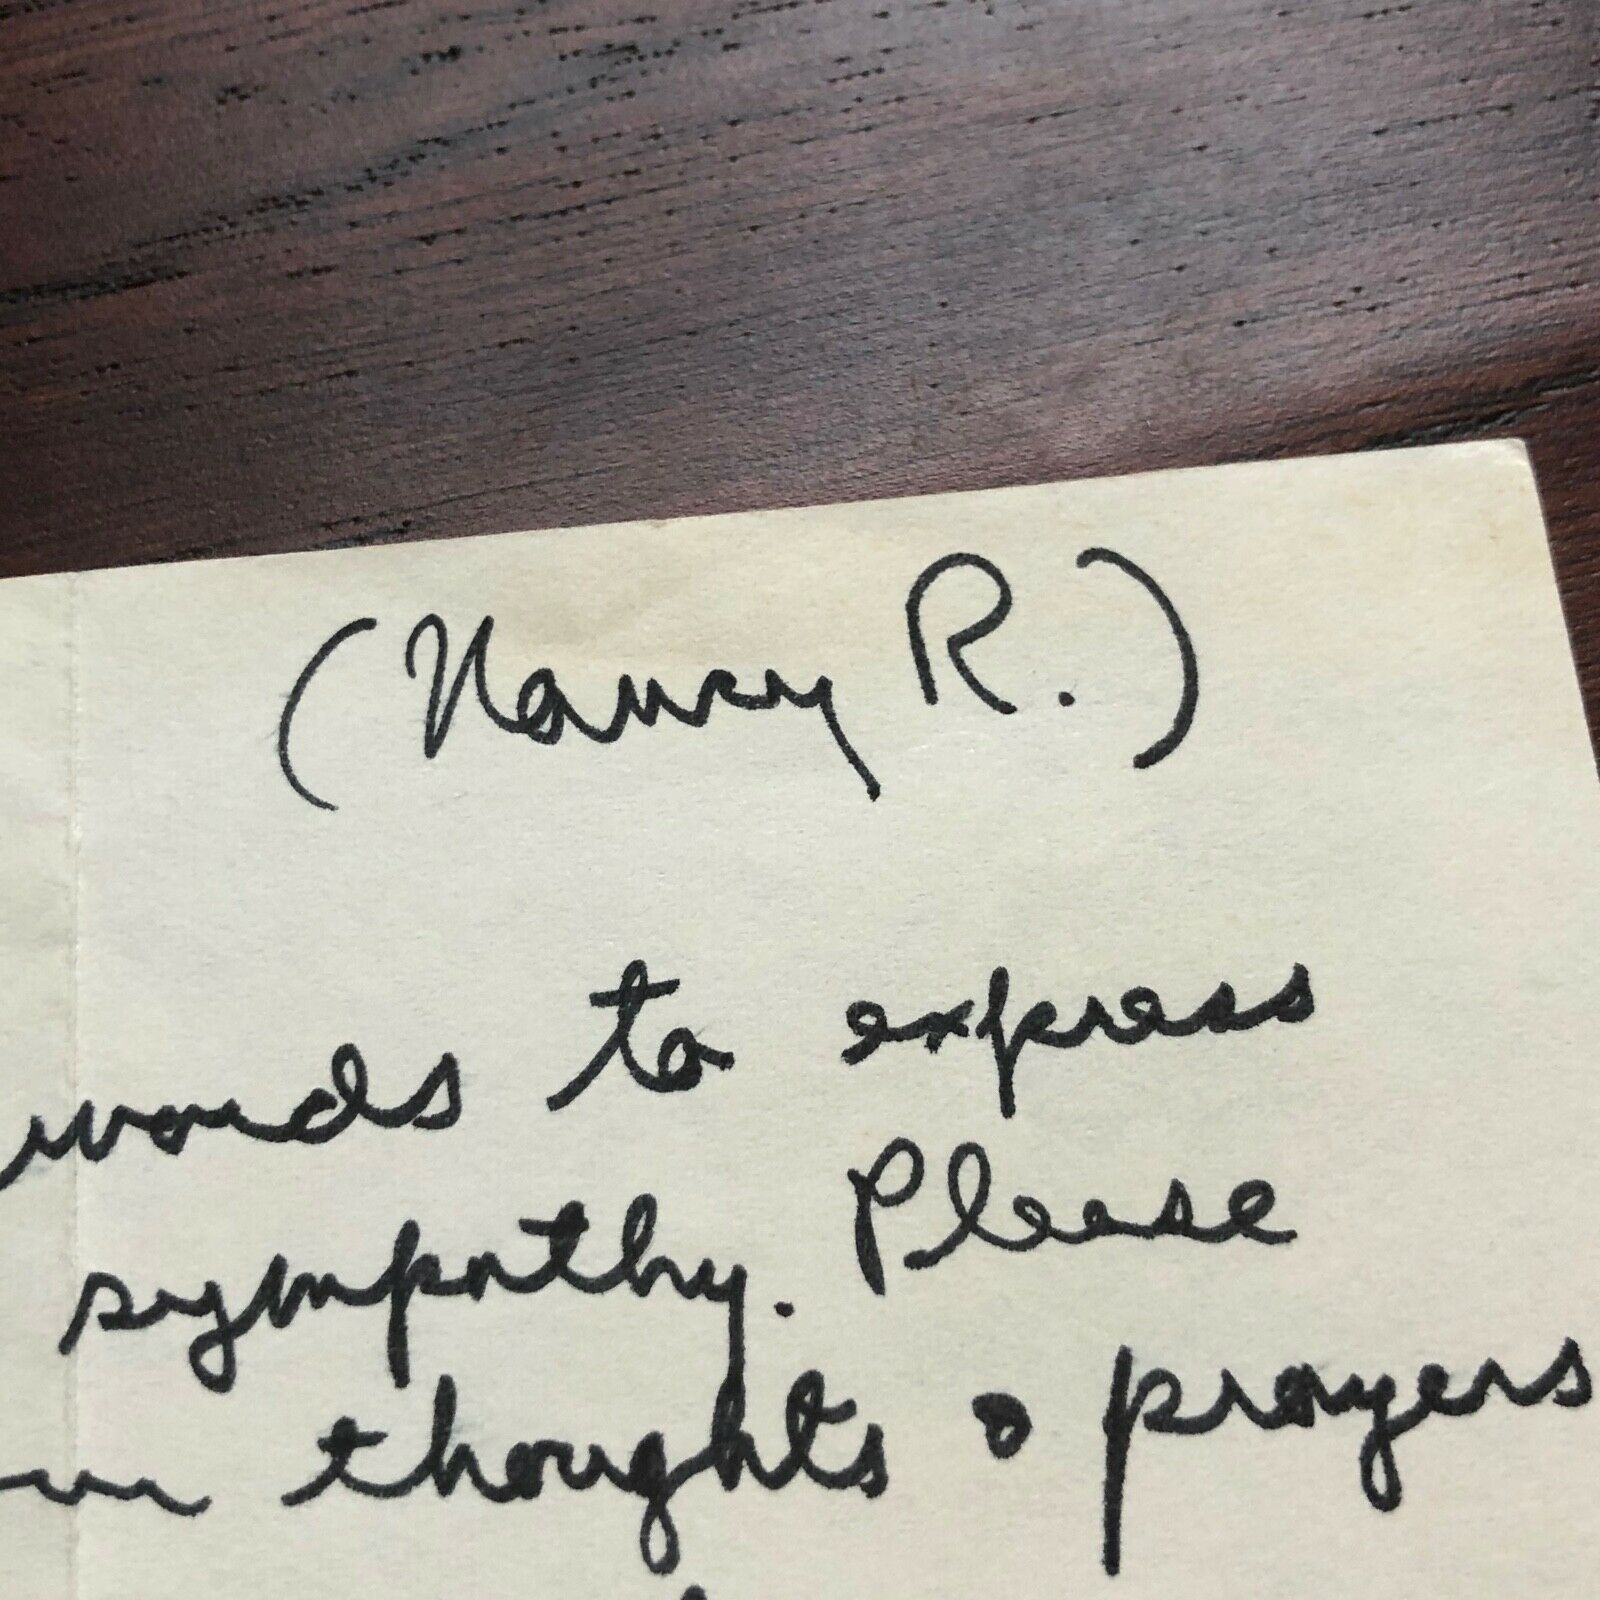 (Nancy R.)
words to express
sympathy. Please
thoughts & prayers